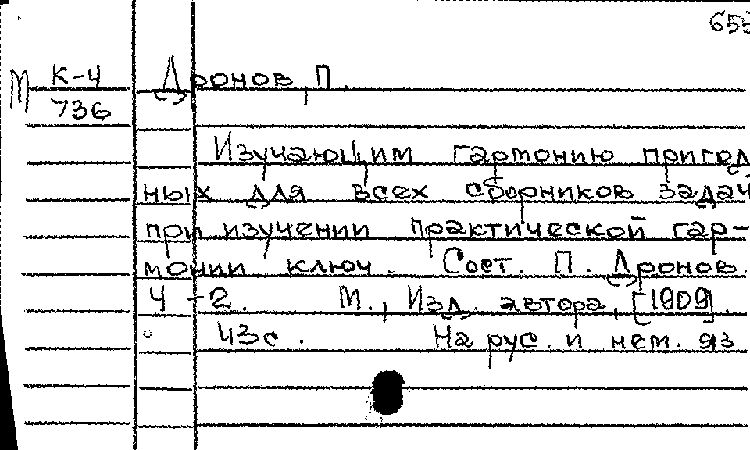 655
М К-4 Дронов, П.
736
Изучающим гармонию пригод
ных для всех сборников задач
при изучении практической гар-
монии ключ. Сост. П. Дронов.
Ч-2. М., Изд. автора, [1909].
43с. На рус. и нем. яз